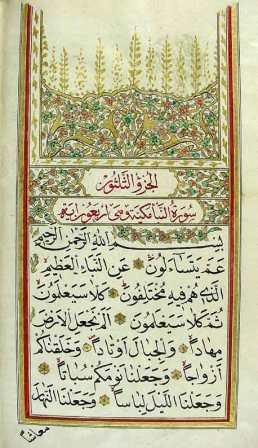 الجزء الثلثون
سورة النبا مكية وهي اربعون اية
بِسْمِ اللَّهِ الرَّحْمَنِ الرَّحِيمِ
عَمَّ يَتَسَاءَلُونَ عَنِ النَّبَاءِ الْعَظِيمِ
الَّذِي هُمْ فِيهِ مُخْتَلِفُونَ كَلَّا سَيَعْلَمُونَ
ثُمَّ كَلَّا سَيَعْلَمُونَ أَلَمْ نَجْعَلِ الْأَرْضَ
مِهَادًا وَالْجِبَالَ أَوْتَادًا وَخَلَقْنَاكُمْ
أَزْوَاجًا وَجَعَلْنَا نَوْمَكُمْ سُبَاتًا
وَجَعَلْنَا اللَّيْلَ لِبَاسًا وَجَعَلْنَا النَّهَارَ
معاشا